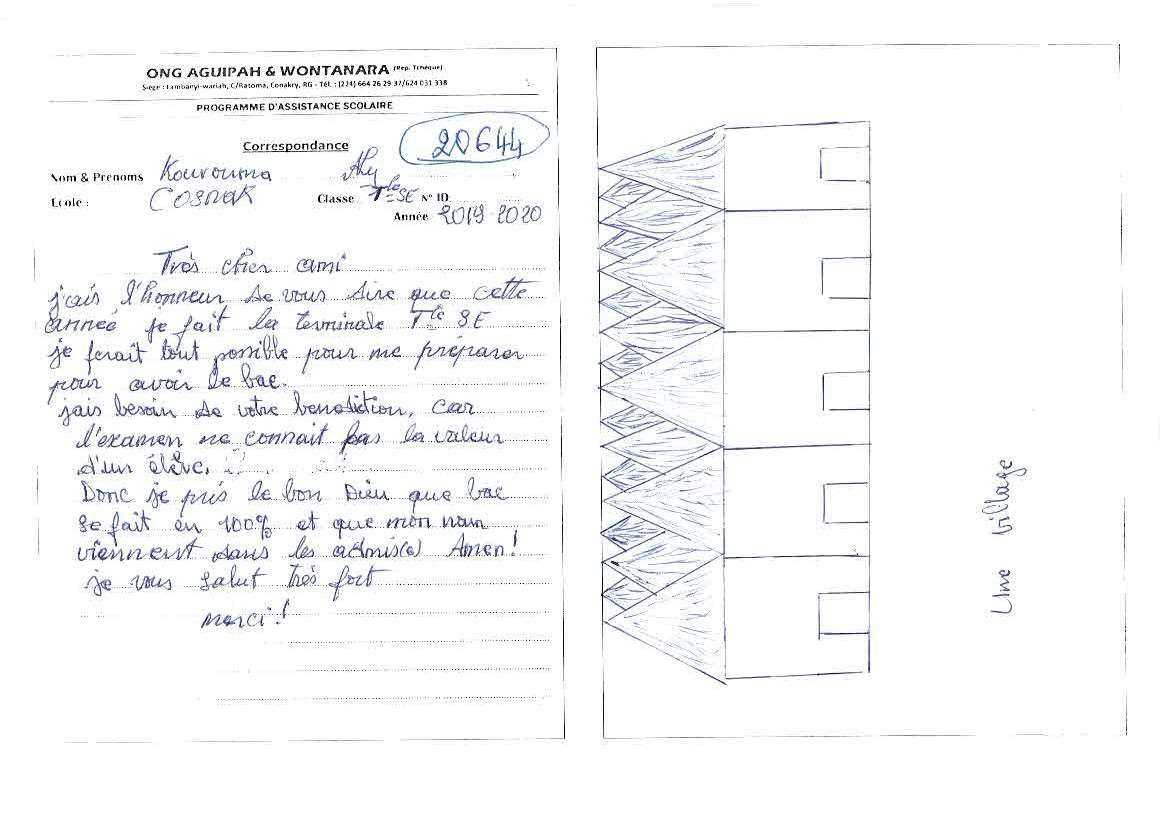 ONG AGUIPAH & WONTANARA (Rep. Tchèque)
Siège : Lambanyi-wariah, C/Ratoma, Conakry, RG - Tél. : (224) 664 26 29 37/624 031 338
PROGRAMME D'ASSISTANCE SCOLAIRE
Correspondance
20644
Nom & Prénoms Kourouma Aly
Ecole : COSNAK Classe Tle SE N° ID
Année 2019-2020
Très cher ami
j'ais l'honneur de vous dire que cette
année je fait la terminale Tle SE
je ferait tout possible pour me préparer
pour avoir le bac.
j'ais besoin de votre benediction, car
l'examen ne connait pas la valeur
d'un élève.
Donc je pris le bon Dieu que bac
se fait en 100% et que mon nom
viennent dans les admis(e) Amen!
je vous salut très fort
merci!
Une village